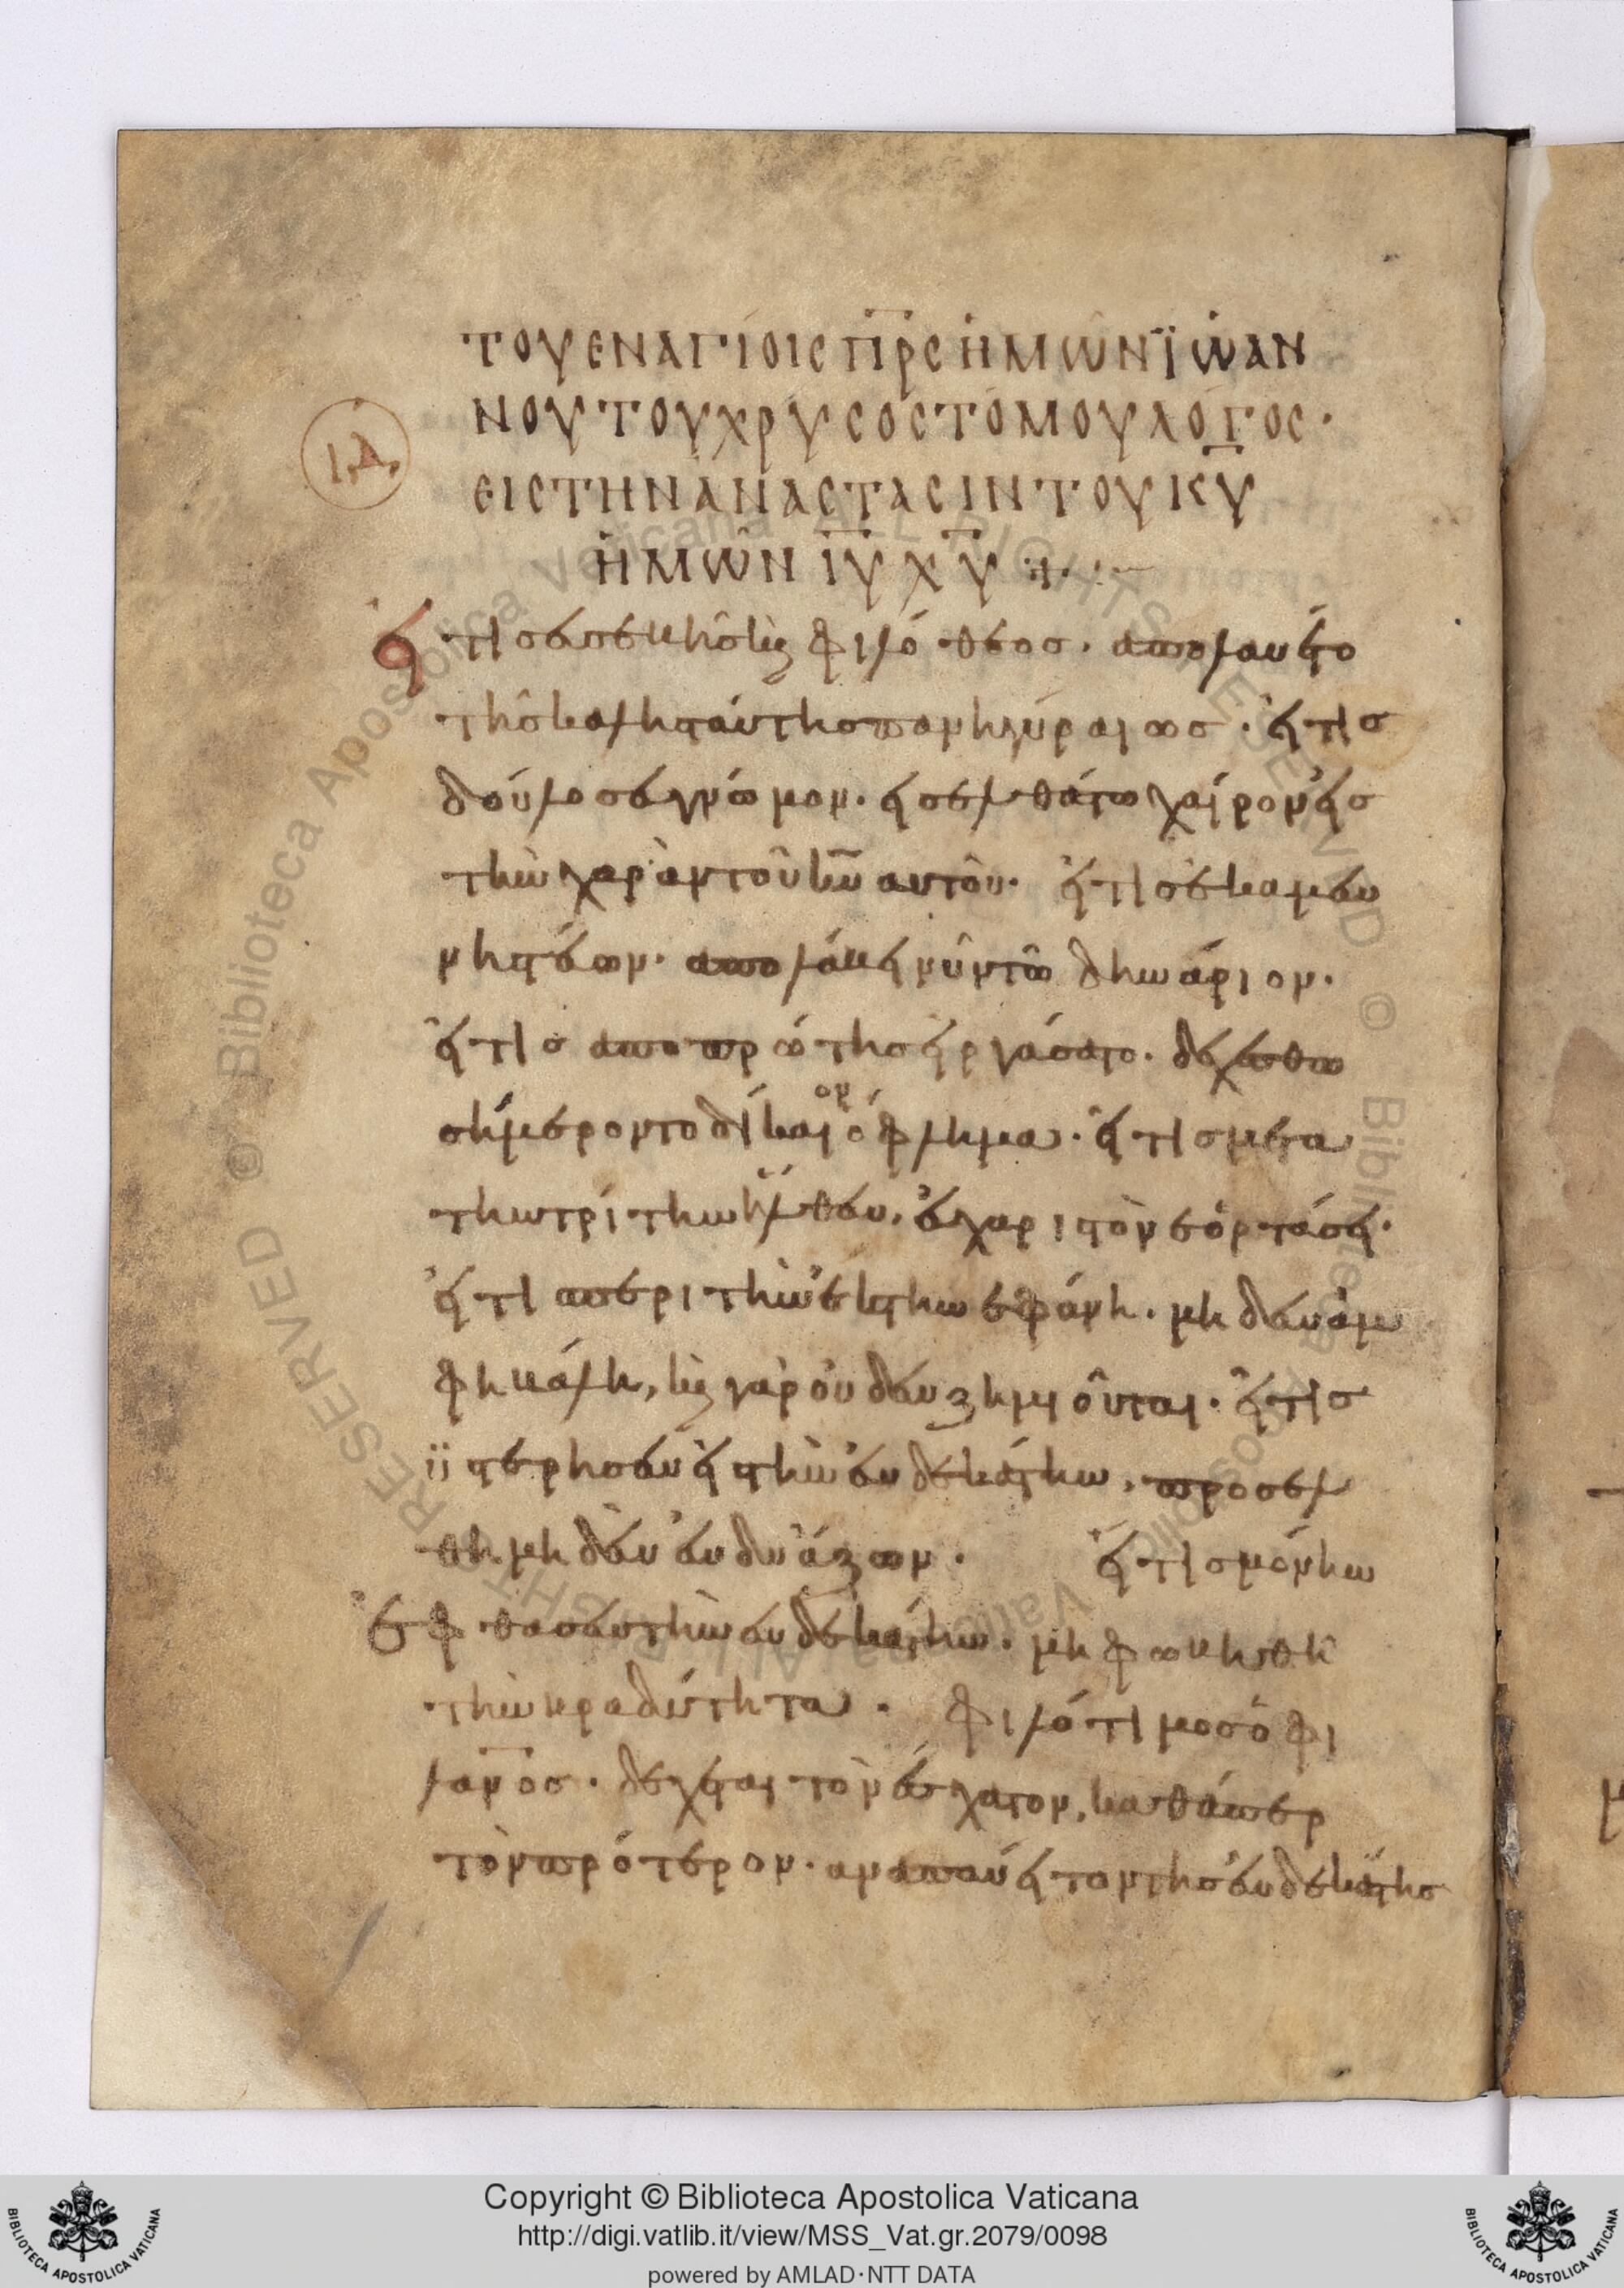 ΤΟΥ ΕΝ ΑΓΙΟΙΣ ΠΡΣ ΗΜΩΝ ΙΩΑΝ
ΝΟΥ ΤΟΥ ΧΡΥΣΟΣΤΟΜΟΥ ΛΟΓΟΣ·
ΙΔ
ΕΙΣ ΤΗΝ ΑΝΑΣΤΑΣΙΝ ΤΟΥ ΚΥ
ΗΜΩΝ ΙΥ ΧΥ
εἴ τις ἐυσεβὴς κ φιλόθεος. απολαυέτο
τῆς καλῆς ταύτης πανηγύραιως. εἴ τις
δούλος ἐγνώμον. εἰσελθάτω χαίρον εἰς
τὴν χαρὰν τοῦ κυ αυτοῦ. εἴ τις ἔκαμεν
νηστέων. απολάβει νῦν τῶ δηνάριον.
εἴ τις απο πρώτης εἰργάσατο. δεχέσθω
σήμερον το δίκαιον ὄφλημα. εἴ τις μετα
την τρίτην ἦλθεν, ἐυχαριστὸν ἑορτάσει.
εἴ τι περι τὴν ἕκτην εφάνη. μηδὲν ἀμ
φηβάλη, κ γαρ οὐδὲν ζημιοῦται. εἴ τις
ϋστερησεν εἰς τὴν ἐνδεκάτην, προσελ
θη μηδὲν ἐνδυάζων. εἴ τις μόνην
ἔφθασεν τὴν ἐνδεκάτην. μη φωβηθῆ
τὴν βραδύτητα. φιλότιμος ὁ φι
λανος. δεχεται τὸν ἔσχατον, καθάπερ
τὸν πρότερον. αναπαύει τον τῆς ἐνδεκάτης
Copyright © Biblioteca Apostolica Vaticana
http://digi.vatlib.it/view/MSS_Vat.gr.2079/0098
powered by AMLAD·NTT DATA
BIBLIOTECA APOSTOLICA VATICANA
BIBLIOTECA APOSTOLICA VATICANA